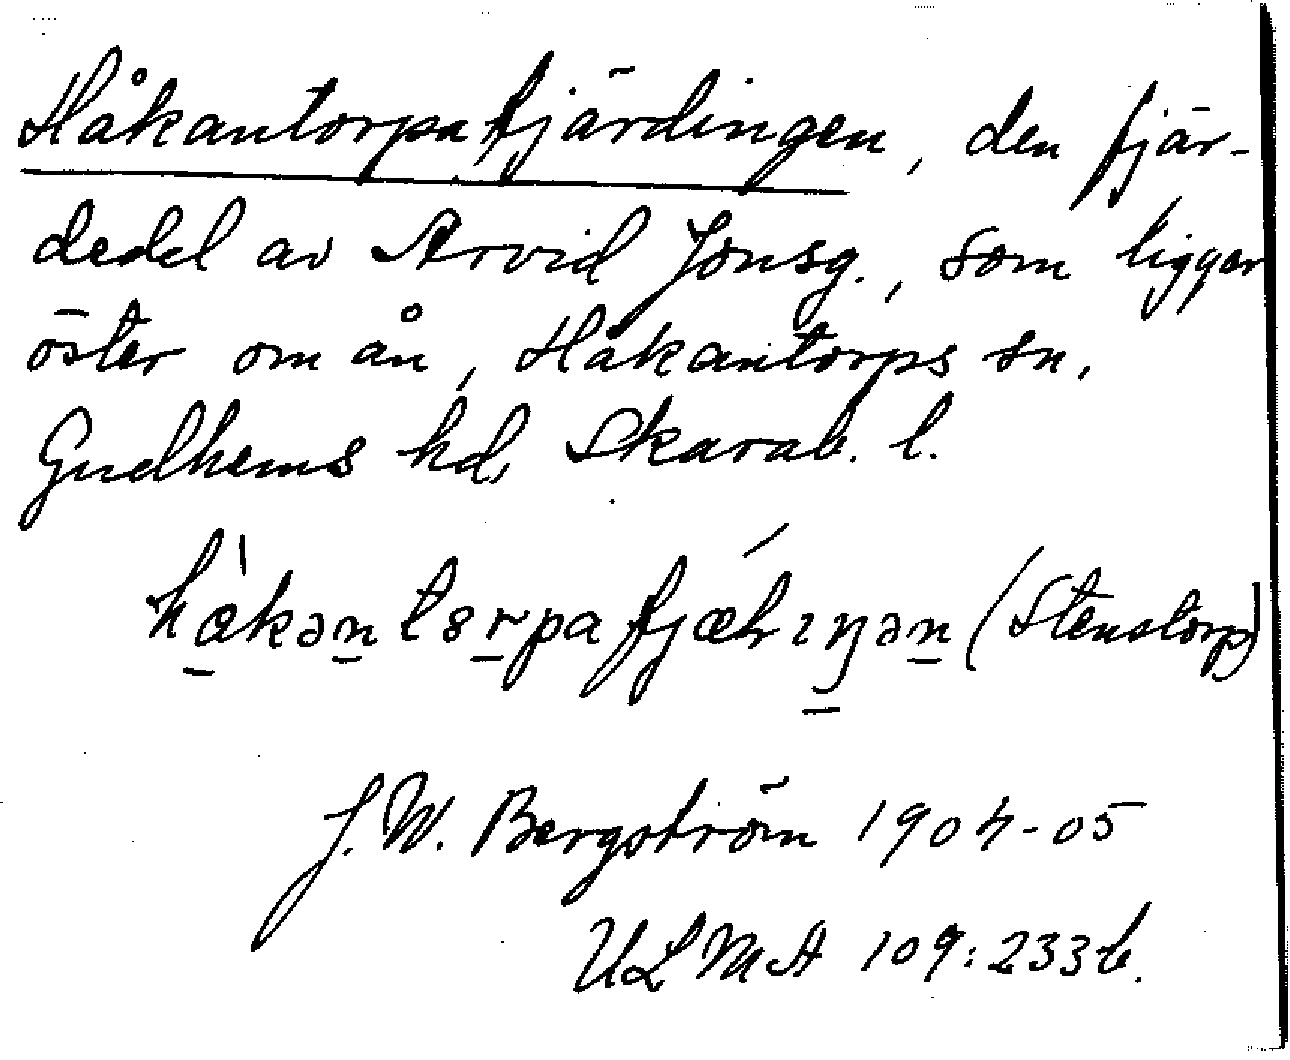 Håkantorpafjärdingen, den fjär-
dedel av Arvid Jonsg., som ligger
öster om ån, Håkantorps sn,
Gudhems hd, Skarab. l.
(Stenstorp)
J. W. Bergström 1904-05
ULMA 109:233b.